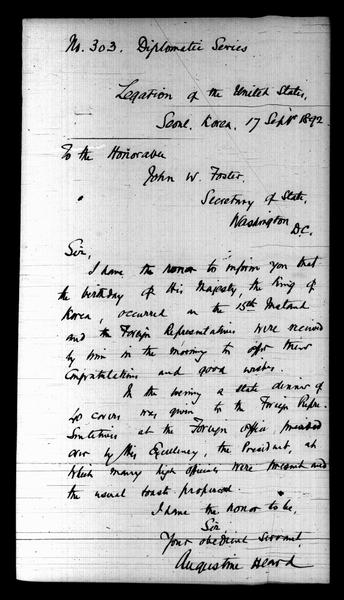 No. 303. Diplomatic Series
Legation of the United States,
Seoul, Korea, 17 Sept 1892
To the Honorable
John W. Foster,
Secretary of State,
Washington
D.C.
Sir,
I have the honor to inform you that
the birthday of His Majesty, the King of
Korea, occurred on the 15th Instant
and the Foreign Representatives were received
by him in the morning to offer their
Congratulations and good wishes.
In the evening a state dinner of
covers was given to the Foreign Repre-
sentatives at the Foreign office presided
over by His Excellency, the President, at
which many high officials were present and
the usual toasts proposed.
I have the honor to be,
Sir
Your obedient Servant,
Augustine Heard